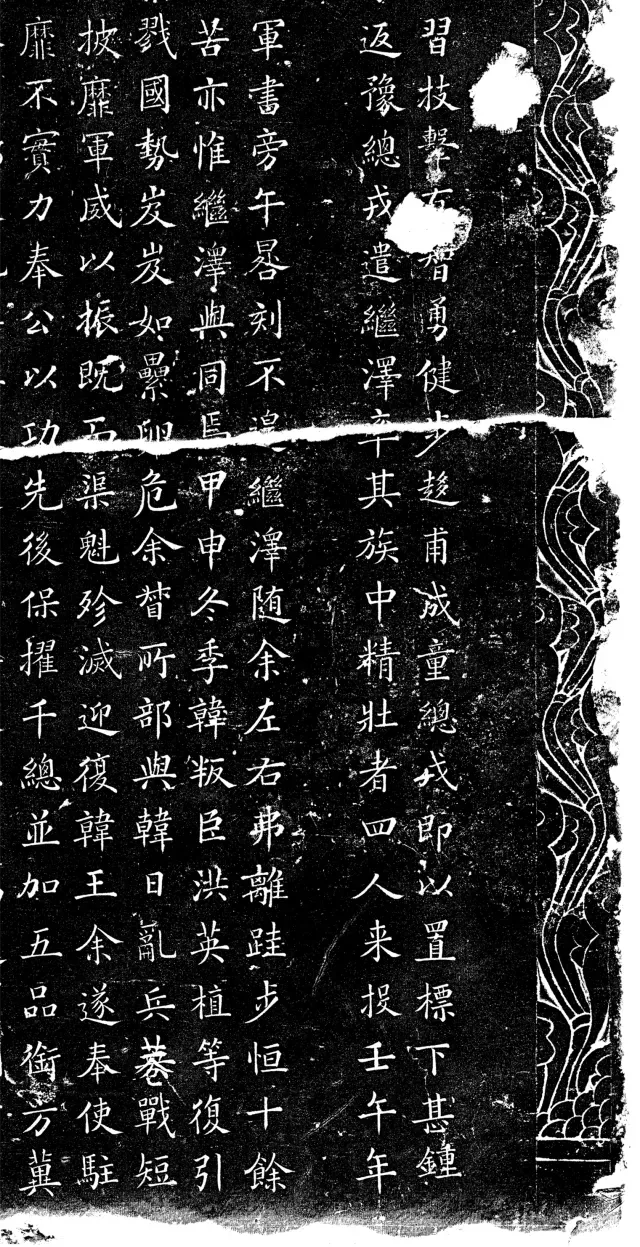 習技擊有智勇健步趍甫成童總戎即以置標下甚鍾
返豫總戎遣繼澤率其族中精壯者四人来投壬午年
軍書旁午晷刻不遑繼澤随余左右弗離跬步恒十餘
苦亦惟繼澤與同焉甲申冬季韓叛臣洪英植等復引
戮國勢岌岌如纍卵危余督所部與韓日亂兵巷戰短
披靡軍威以振既而渠魁殄滅迎復韓王余遂奉使駐
靡不實力奉公以功先後保擢千總並加五品銜方冀